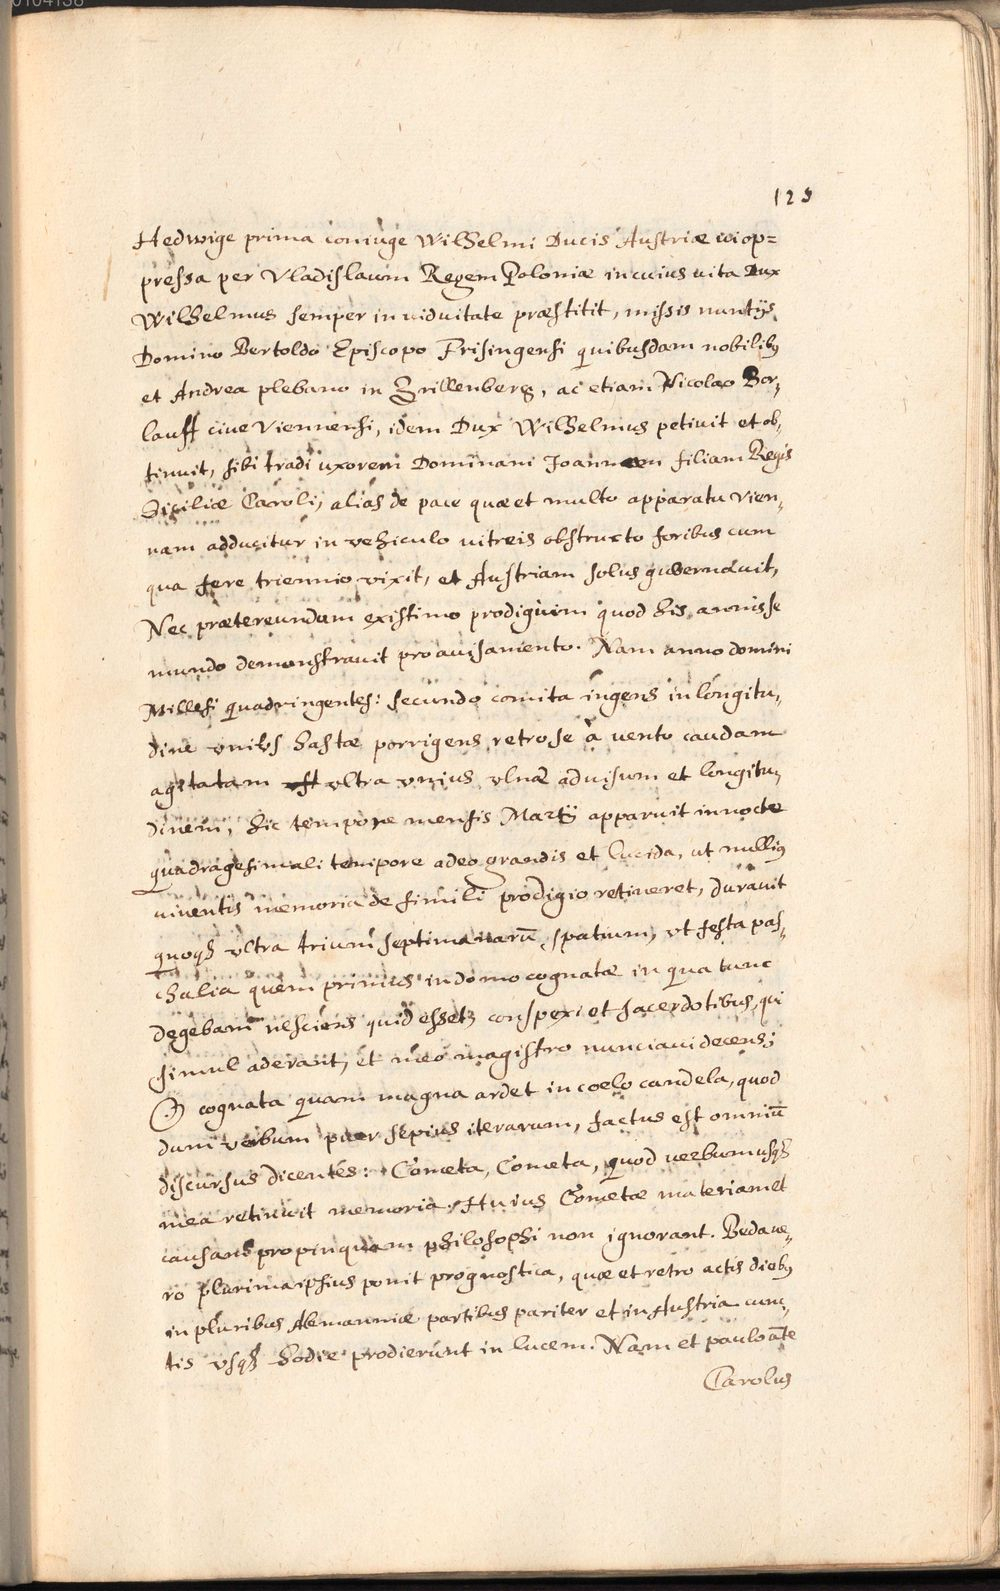 0104138
125
Hedwige prima coniuge Wilhelmi Ducis Austriæ vi op=
pressa per Vladislaum Regem Poloniæ in cuius uita Dux
Wilhelmus semper in uiduitate præstitit, missis nuntijs
Domino Bertoldo Episcopo Frisingensi quibusdam nobilibꝰ
et Andrea plebano in Grillenberg, ac etiam Nicolao Bor,
lauff ciue Viennensi, idem Dux Wilhelmus petiuit et ob,
tinuit, sibi tradi uxorem Dominam Joannam filiam Regis
Siciliæ Caroli, alias de pace quæ et multo apparatu Vien,
nam adducitur in vehiculo uitreis obstructo foribus cum
qua fere triennio vixit, et Austriam solus gubernauit,
Nec prætereundum existimo prodigium quod his annis se
mundo demonstrauit pro auisamento. Nam anno domini
Millesi quadringentesi: secundo comita ingens in longitu,
dine unius hastæ porrigens retro se à uento caudam
agitatam ultra unius ulnæ ad uisum et longitu,
dinem, hic tempore mensis Martij apparuit in nocte
quadragesimali tempore adeo grandis et lucida, ut nulliꝰ
uiuentis memoria de simili prodigio retineret, durauit
quoqꝫ ultra trium septimanarū spatium, ut festa pas,
chalia quem primus in domo cognatæ in qua tunc
degebam nesciens quid esset conspexi et sacerdotibus, qui
simul aderant, et meo magistro nunciaui decens;
O cognata quam magna ardet in coelo candela, quod
dum verbum puer sepius iterarum, factus est omniū
discursus dicentes: Cometa, Cometa, quod uerbum usqꝫ
mea retinuit memoria. Huius Cometæ materiam et
causam propinquam philosophi non ignorant. Beda ue,
ro plurima ipsius ponit prognostica, quæ et retro actis diebꝰ
in pluribus Alemanniæ partibus pariter et in Austria cunc,
tis usqꝫ hodie prodierunt in lucem. Nam et paulo āte
Carolus